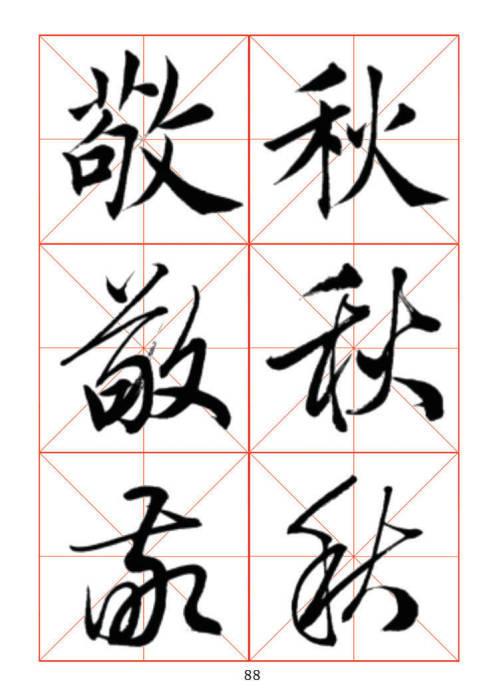 敬 秋
敬 秋
敬 秋
88